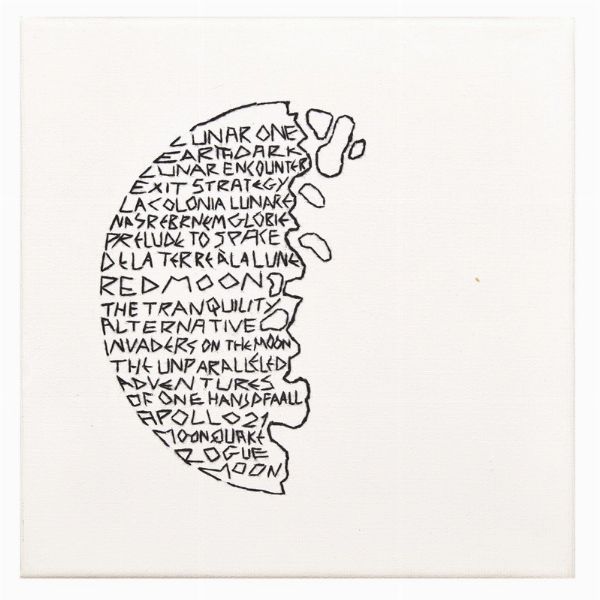 LUNAR ONE
EARTHDARK
LUNAR ENCOUNTER
EXIT STRATEGY
LA COLONIA LUNARE
NA SREBRNEM GLOBIE
PRELUDE TO SPACE
DE LA TERRE À LA LUNE
RED MOON
THE TRANQUILITY
ALTERNATIVE
INVADERS ON THE MOON
THE UNPARALLELED
ADVENTURES
OF ONE HANS PFAALL
APOLLO 21
MOONQUAKE
ROGUE
MOON